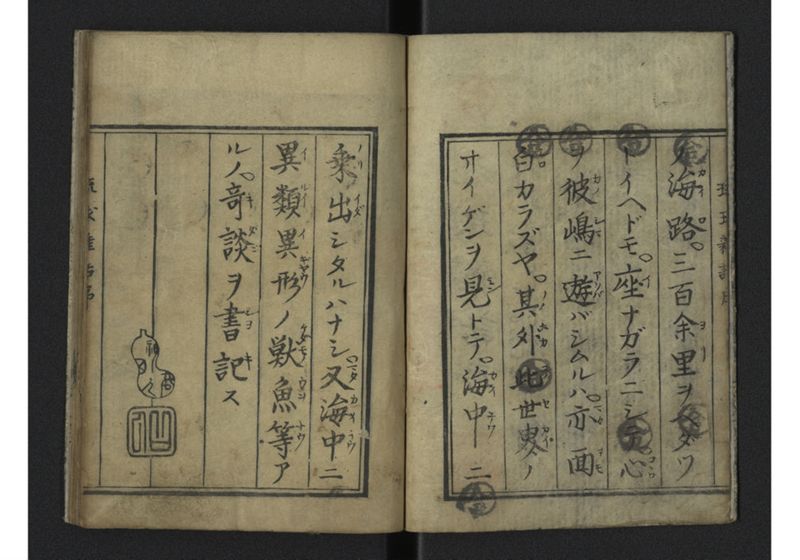 海路。三百余里ヲヘダツ
トイヘドモ。座ナガラニシテ心
ヲ彼嶋ニ遊バシムルハ。亦面
白カラズヤ。其外此世界ノ
オイゲンヲ見トテ。海中ニ
乗出シタルハナシ。又海中ニ
異類異形ノ獣魚等ア
ルノ。奇談ヲ書記ス